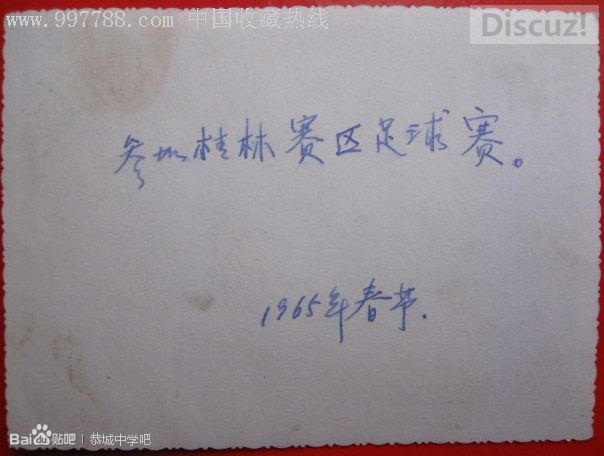 www.997788.com 中国收藏热线
Discuz!
参加桂林赛区足球赛。
1965年春节.
Bai du 贴吧 | 恭城中学吧